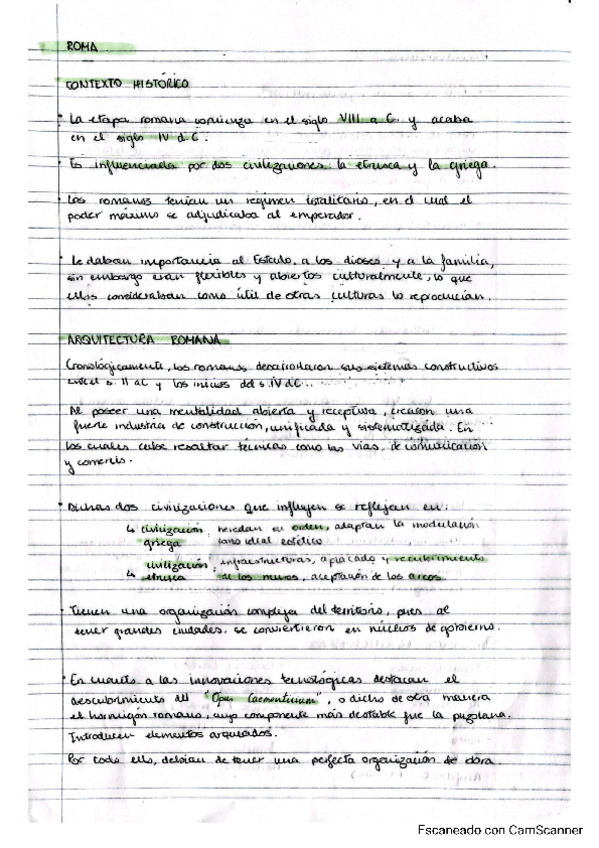 ROMA
CONTEXTO HISTÓRICO
· La etapa romana comienza en el siglo VIII a.C. y acaba
en el siglo IV d.C.
· Es influenciada por dos civilizaciones la etrusca y la griega.
· Los romanos tenían un régimen totalitario, en el cual el
poder máximo se adjudicaba al emperador.
· Le daban importancia al Estado, a los dioses y a la familia,
sin embargo eran flexibles y abiertos culturalmente, lo que
ellos consideraban como útil de otras culturas lo reproducían.
ARQUITECTURA ROMANA
Cronológicamente, los romanos desarrollaron sus sistemas constructivos
s. II aC y los inicios del s. IV d.C.
Al poseer una mentalidad abierta y receptiva, crearon una
fuerte industria de construcción, unificada y sistematizada. En
los cuales cabe resaltar técnicas como las vías, de comunicación
y comercio.
· Dichas dos civilizaciones que influyen se reflejan en:
↳ civilización griega: heredan su orden, adaptan la modulación
como ideal estético
↳ civilización etrusca: infraestructuras, aplacado y recubrimiento
de los muros, aceptación de los arcos.
· Tienen una organización compleja del territorio, pues al
tener grandes ciudades, se convirtieron en núcleos de gobierno.
· En cuanto a las innovaciones tecnológicas destacan el
descubrimiento del "Opus Caementicium", o dicho de otra manera
el hormigón romano, cuyo componente más destable fue la puzolana.
Introducen elementos arqueados.
Por todo ello, debían de tener una perfecta organización de obra
Escaneado con CamScanner